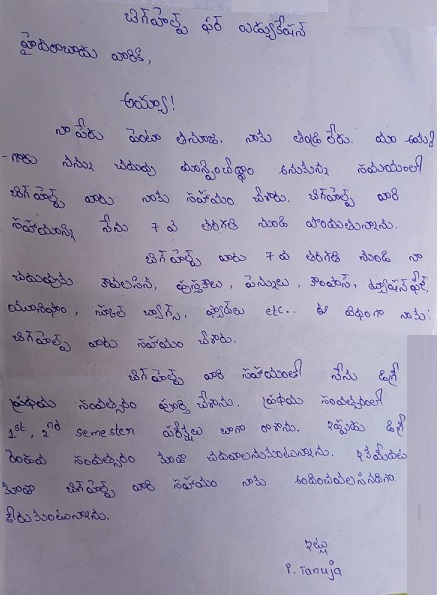 బిగ్‌హెల్ప్ ఫర్ ఎడ్యుకేషన్
హైదరాబాదు వారికి,
అయ్యా!
నా పేరు పెంటా తనూజ. నాకు తండ్రి లేరు. మా అమ్మ
గారు నన్ను చదువు మాన్పించేద్దాం అనుకున్న సమయంలో
బిగ్ హెల్ప్ వారు నాకు సహాయం చేశారు. బిగ్‌హెల్ప్ వారి
సహాయాన్ని నేను 7 వ తరగతి నుండి పొందుతున్నాను.
బిగ్‌హెల్ప్ వారు 7 వ తరగతి నుండి నా
చదువుకు కావలసిన, పుస్తకాలు, పెన్నులు, కాంపాస్, ట్యూషన్ ఫీజ్,
యూనిఫాం, స్కూల్ బ్యాగ్స్, ప్యాడ్‌లు etc... ఈ విధంగా నాకు
బిగ్‌హెల్ప్ వారు సహాయం చేశారు.
బిగ్‌హెల్ప్ వారి సహాయంతో నేను డిగ్రీ
ప్రథమ సంవత్సరం పూర్తి చేశాను. ప్రథమ సంవత్సరంలో
1st, 2nd semester పరీక్షలు బాగా రాశాను. ఇప్పుడు డిగ్రీ
రెండవ సంవత్సరం కూడా చదవాలనుకుంటున్నాను. ఇకమీదట
కూడా బిగ్‌హెల్ప్ వారి సహాయం నాకు అందించవలసినదిగా
కోరుకుంటున్నాను.
ఇట్లు
P. Tanuja